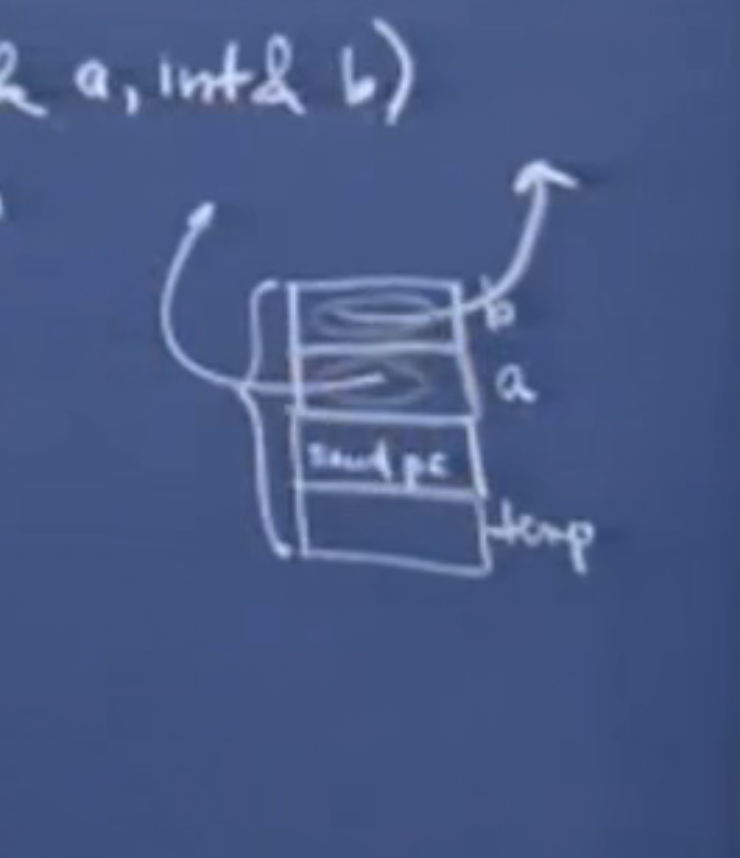 & a, int& b)
b
a
saved pc
temp